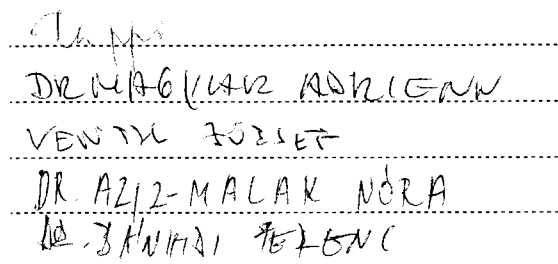 DR MAGYAR ADRIENN
JÓZSEF
DR. AZIZ-MALAK NÓRA
DR. BÁNHIDI FERENC